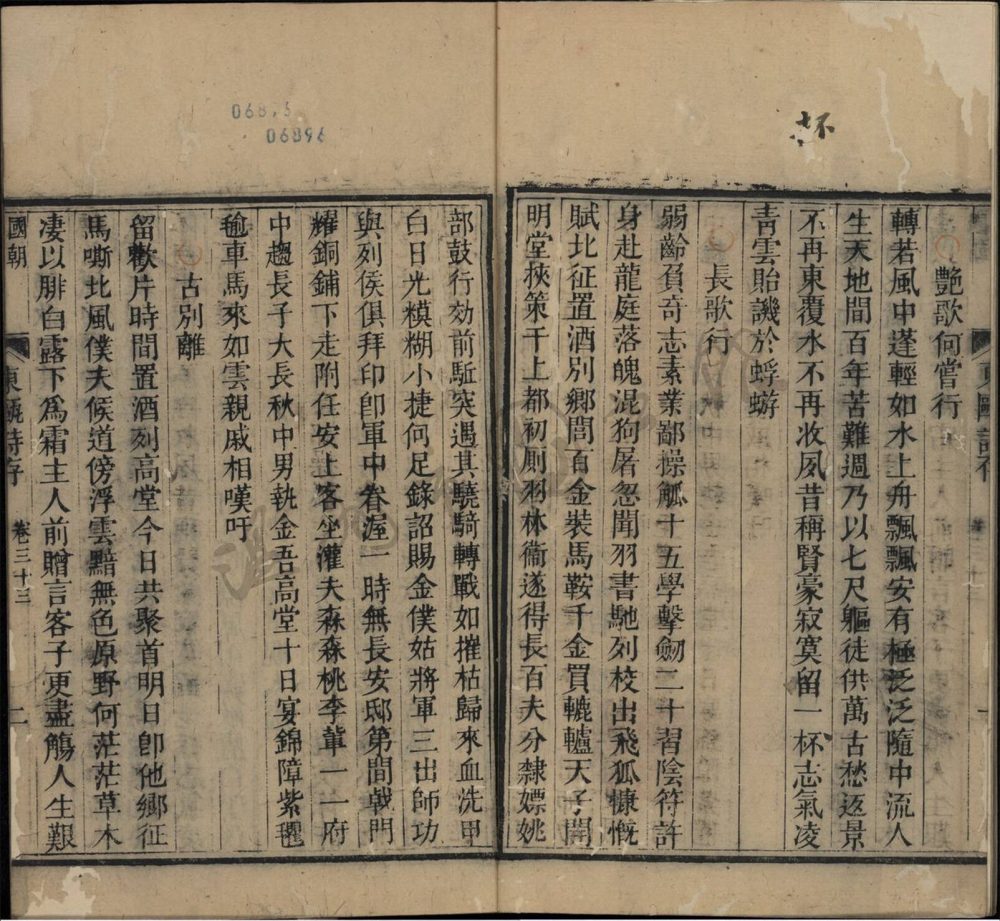 杯
06896
艷歌何嘗行
轉若風中蓬輕如水上舟飄飄安有極泛泛隨中流人
生天地間百年苦難週乃以七尺軀徒供萬古愁返景
不再東覆水不再收夙昔稱賢豪寂寞留一杯志氣凌
靑雲貽譏於蜉蝣
長歌行
弱齡負奇志素業鄙操觚十五學擊劒二十習陰符許
身赴龍庭落魄混狗屠忽聞羽書馳列校出飛狐慷慨
賦北征置酒別鄉閭百金裝馬鞍千金買轆轤天子開
明堂挾策干上都初則羽林衞遂得長百夫分隸嫖姚
部鼓行効前駈突遇其驍騎轉戰如摧枯歸來血洗甲
白日光模糊小捷何足錄詔賜金僕姑將軍三出師功
與列侯俱拜印卽軍中眷渥一時無長安邸第間戟門
耀銅鋪下走附任安上客坐灌夫森森桃李軰一一府
中趨長子大長秋中男執金吾高堂十日宴錦障紫氍
毺車馬來如雲親戚相嘆吁
古別離
留歡片時間置酒列高堂今日共聚首明日卽他鄉征
馬嘶北風僕夫候道傍浮雲黯無色原野何茫茫草木
凄以腓白露下爲霜主人前贈言客子更盡觴人生艱
國朝
東甌詩存
卷三十三
二